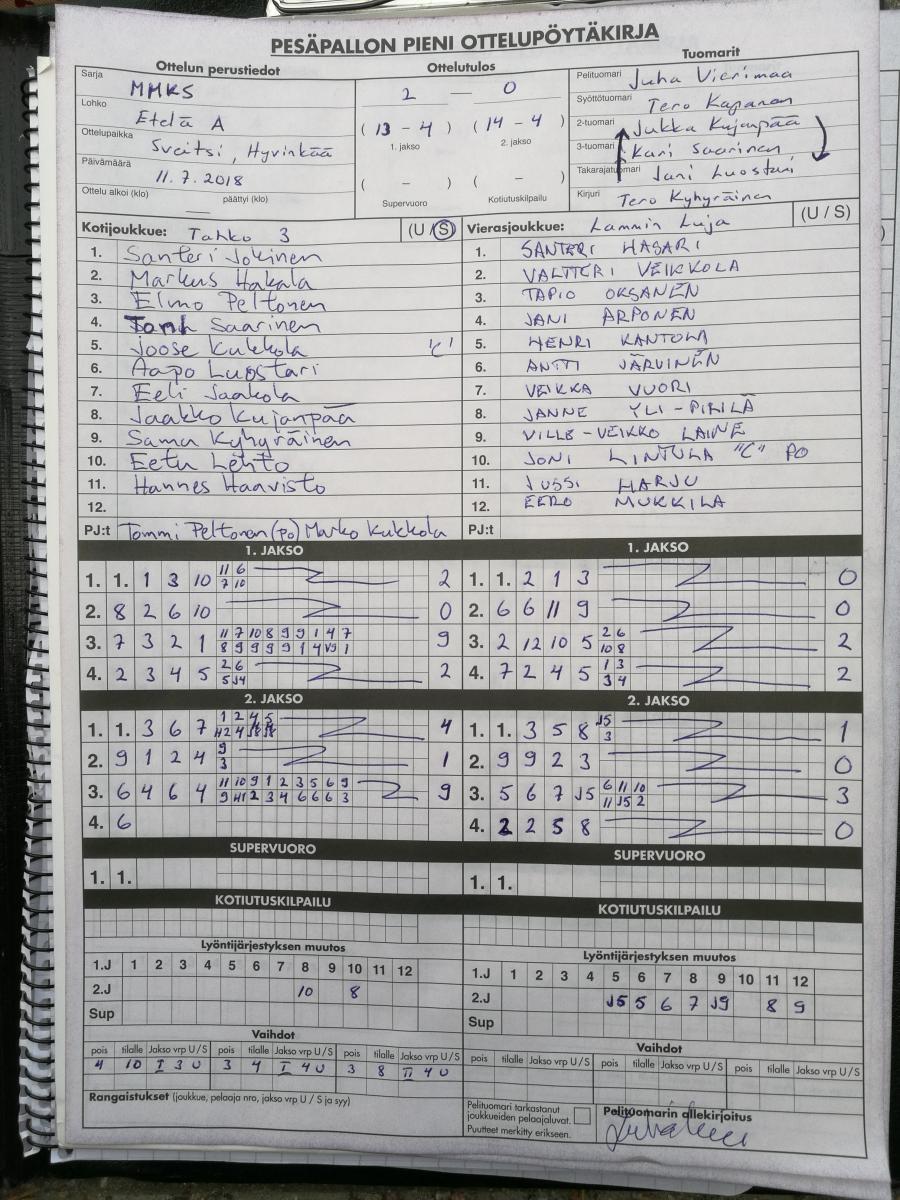 PESÄPALLON PIENI OTTELUPÖYTÄKIRJA
Ottelun perustiedot
Sarja MMKS
Lohko Etelä A
Ottelupaikka Sveitsi, Hyvinkää
Päivämäärä 11.7.2018
Ottelu alkoi (klo) — päättyi (klo)
Ottelutulos
2 — 0
( 13 - 4 ) ( 14 - 4 )
1. jakso 2. jakso
( - ) ( - )
Supervuoro Kotiutuskilpailu
Tuomarit
Pelituomari Juha Vierimaa
Syöttötuomari Tero Kapanen
2-tuomari Jukka Kujanpää
3-tuomari Kari Saarinen
Takarajatuomari Jani Luostari
Kirjuri Tero Kyhyräinen
Kotijoukkue: Tahko 3 (U / S)
1. Santeri Jokinen
2. Markus Hakala
3. Elmo Peltonen
4. Saarinen
5. Joose Kukkola "C"
6. Aapo Luostari
7. Eeli Jaakola
8. Jaakko Kujanpää
9. Samu Kyhyräinen
10. Eetu Lehto
11. Hannes Haavisto
12.
PJ:t Tommi Peltonen (po) Marko Kukkola
Vierasjoukkue: Lammin Luja (U / S)
1. SANTERI HASARI
2. VALTTERI VEIKKOLA
3. TAPIO OKSANEN
4. JANI ARPONEN
5. HENRI KANTOLA
6. ANTTI JÄRVINEN
7. VEIKKA VUORI
8. JANNE YLI-PIRILÄ
9. VILLE-VEIKKO LAINE
10. JONI LINTULA "C" PO
11. JUSSI HARJU
12. EERO MUKKILA
PJ:t
1. JAKSO
1. 1. 1 3 10 11 6 2
7 10
2. 8 2 6 10 0
3. 7 3 2 1 11 7 10 8 9 9 1 4 7 9
8 9 9 9 9 1 4 V9 1
4. 2 3 4 5 2 6 2
5 J4
1. JAKSO
1. 1. 2 1 3 0
2. 6 6 11 9 0
3. 2 12 10 5 2 6 2
10 8
4. 7 2 4 5 1 3 2
3 4
2. JAKSO
1. 1. 3 6 7 1 2 4 5 4
2. 9 1 2 4 9 1
3
3. 6 4 6 4 11 10 9 1 2 3 5 6 9 9
9 2 3 4 6 6 6 3
4. 6
2. JAKSO
1. 1. 3 5 8 J5 1
3
2. 9 9 2 3 0
3. 5 6 7 J5 6 11 10 3
11 J5 2
4. 2 2 5 8 0
SUPERVUORO
1. 1.
SUPERVUORO
1. 1.
KOTIUTUSKILPAILU
KOTIUTUSKILPAILU
Lyöntijärjestyksen muutos
1.J 1 2 3 4 5 6 7 8 9 10 11 12
2.J 10 8
Sup
Lyöntijärjestyksen muutos
1.J 1 2 3 4 5 6 7 8 9 10 11 12
2.J J5 5 6 7 J9 8 9
Sup
Vaihdot
pois tilalle Jakso vrp U/S pois tilalle Jakso vrp U/S pois tilalle Jakso vrp U/S
4 10 I 3 U 3 4 I 4 U 3 8 II 4 U
Vaihdot
pois tilalle Jakso vrp U/S pois tilalle Jakso vrp U/S pois tilalle Jakso vrp U/S
Rangaistukset (joukkue, pelaaja nro, jakso vrp U / S ja syy)
Pelituomari tarkastanut
joukkueiden pelaajaluvat.
Puutteet merkitty erikseen.
Pelituomarin allekirjoitus